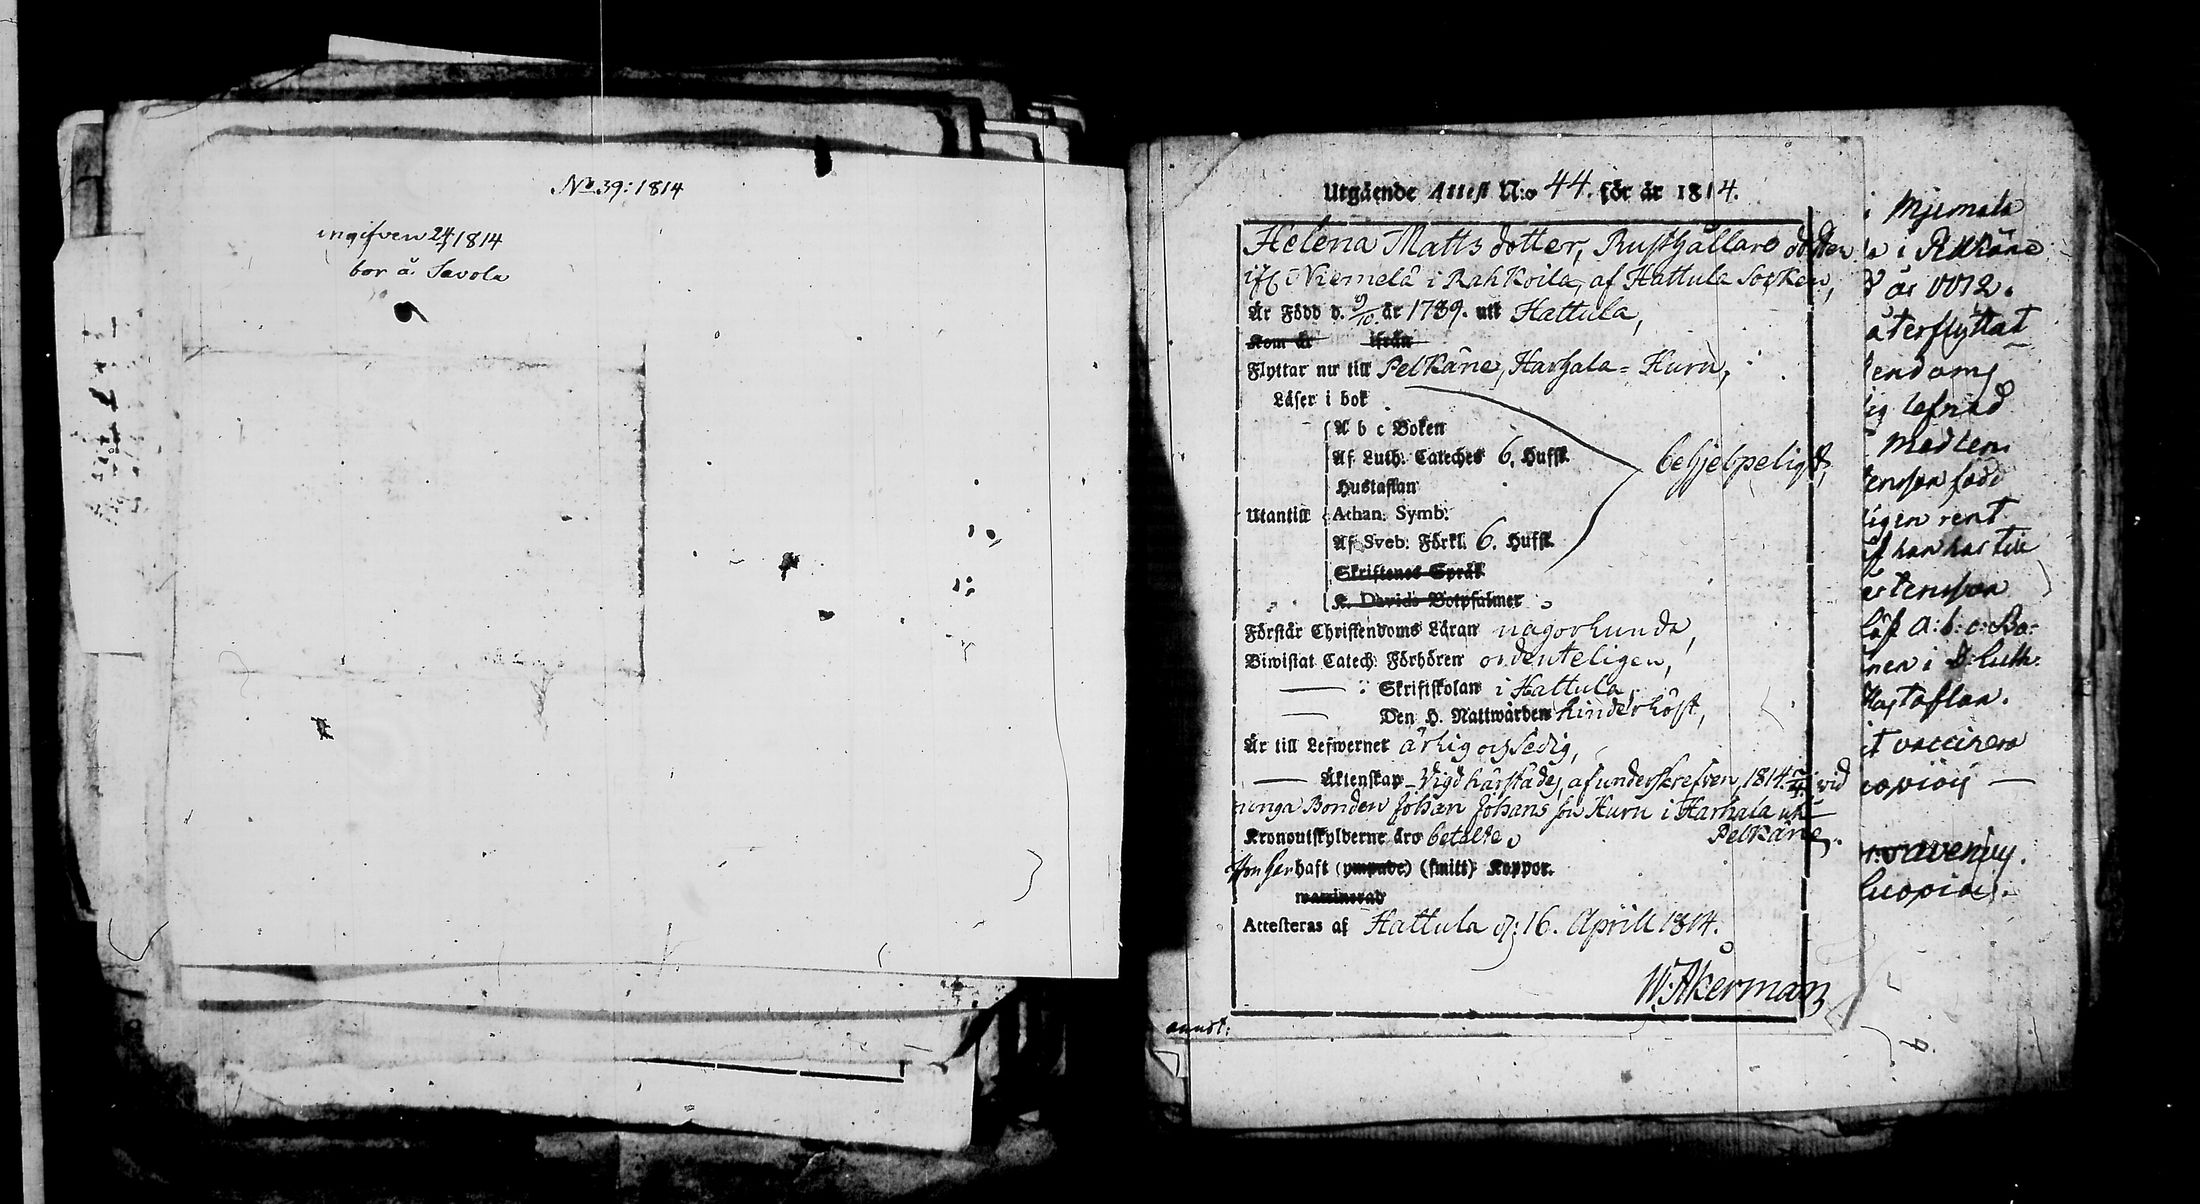 No 39: 1814
ingifven 24/4 1814
bor å Savola
Utgående Attest N:o 44. för år 1814.
Helena Matts dotter, Rusthållare dotter
ifr Niemelä i Rahkoila, af Hattula Socken,
Är Född d. 9/10 år 1789. uti Hattula,
Kom år ifrån
Flyttar nu till Pelkäne, Harhala-Huru,
Läser i bok
A b c Boken
Af Luth. Cateches 6. Hufst.
Hustaflan
behjelpeligt,
Utantill Athan. Symb.
Af Sveb: Förkl. 6. Hufst.
Skriftenes Språk
K. Davids Botpsalmer
Förstår Christendoms Läran någorlunda,
Biwistat Catech: Förhören ordenteligen,
Skriftskolan i Hattula,
Den H. Nattwarden hinderlöst,
Är till Lefwernet ärlig och sedig,
Äktenskap Vigd härstädes, af underskrefven, 1814 vid
unga Bonden Johan Johans son Huru i Harhala uti
Pelkäne.
Kronoutskylderne äro betalte.
Hon har haft (ympade) (smitt) Koppor.
waccinerad
Attesteras af Hattula d: 16. Aprill 1814.
W: Åkerman
Mjemala
i Pelkäne
år
återflyttat
endoms
ig lefnad
Medlen
enskan född
ligen rent
han har till
läst A:b:c: Bo-
nen i D: Luth:
Hustaflan.
t vaccinera
copiøs